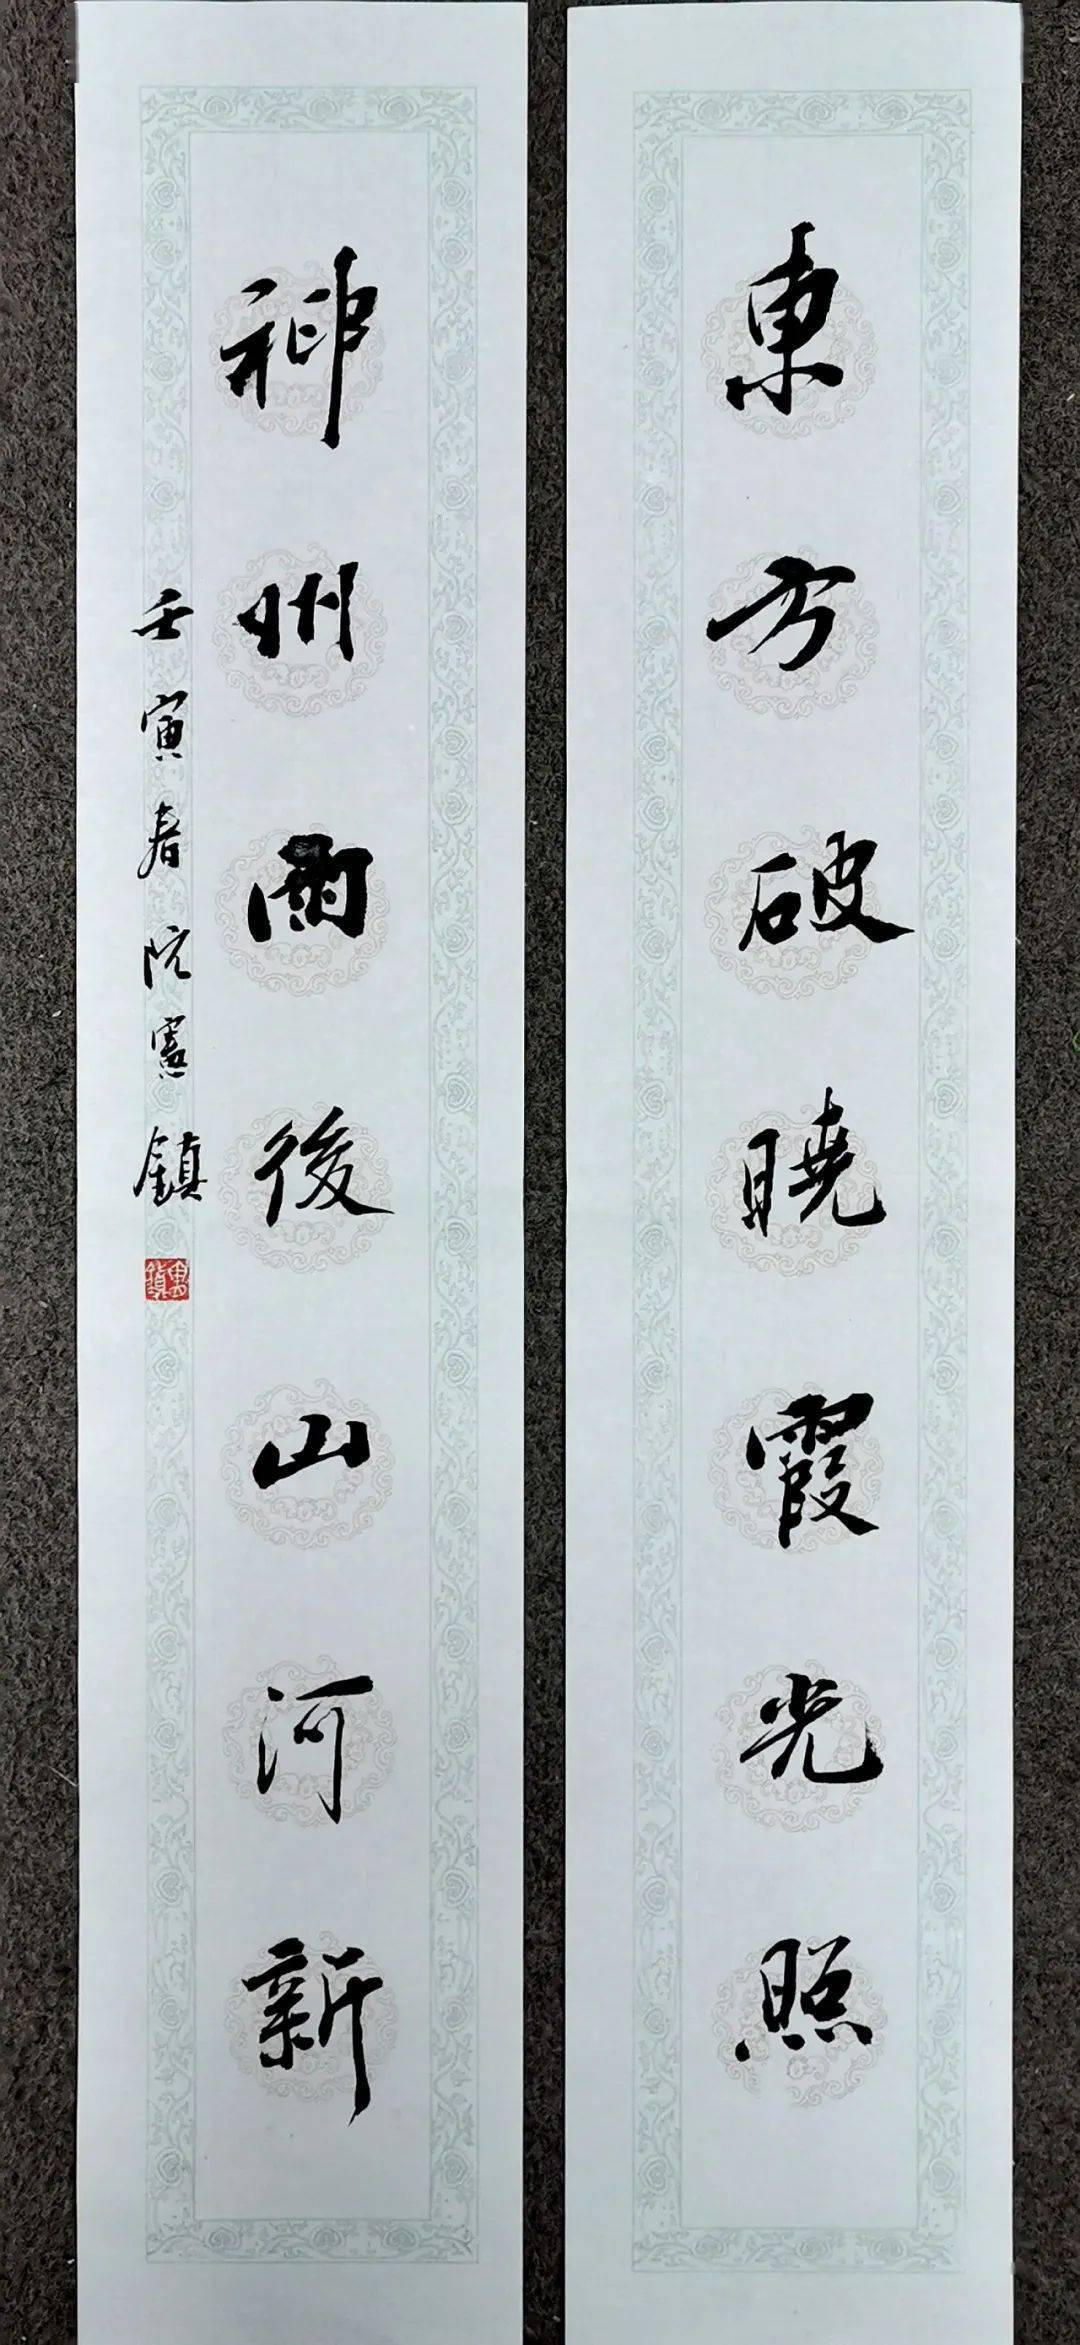 東方破曉霞光照
神州雨後山河新
壬寅春阮憲鎮